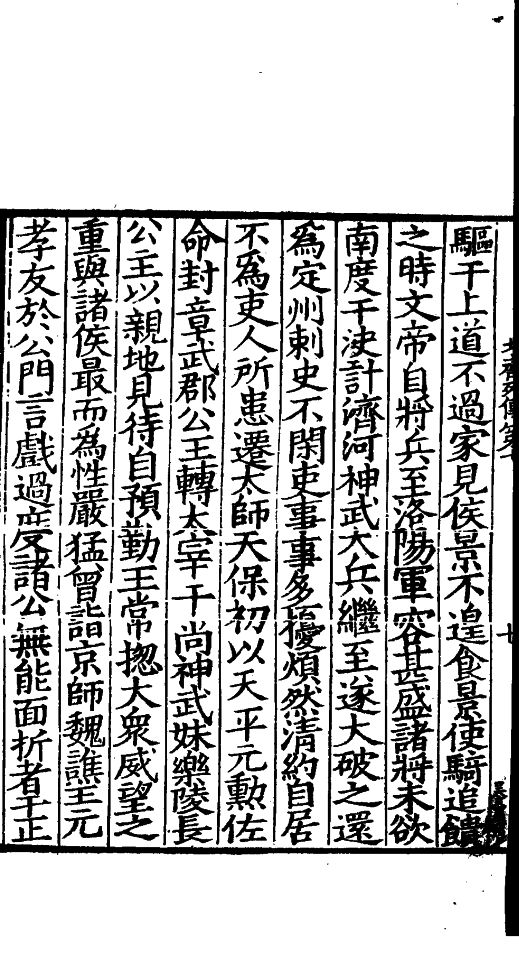 驅干上道不過家見侯景不遑食景使騎追饋
之時文帝自將兵至洛陽軍容甚盛諸將未欲
南度干决計濟河神武大兵繼至遂大破之還
爲定州刺史不閑吏事事多擾煩然清約自居
不爲吏人所患遷太師天保初以天平元勲佐
命封章武郡公王轉太宰干尚神武妹樂陵長
公主以親地見待自預勤王常揔大衆威望之
重與諸侯最而為性嚴猛曾詣京師魏譙王元
孝友於公門言戲過度諸公無能面折者干正